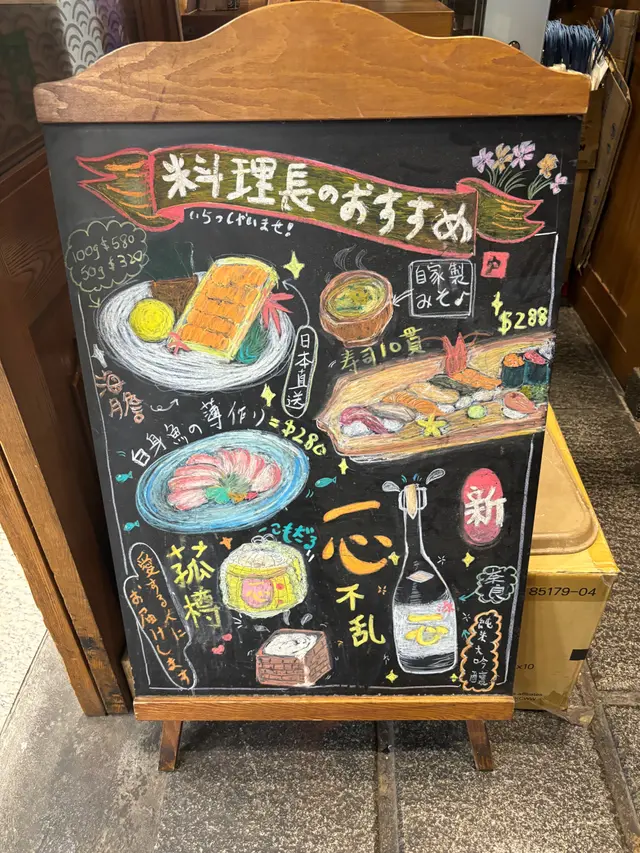 料理長のおすすめ
いらっしゃいませ!
100g $580
50g $320
自家製
みそ
$288
寿司10貫
日本直送
海膽
白身魚の薄作り=$280
新
一心
不乱
こもだる
菰樽
愛する人に
お届けします
一心
奈良
純米大吟醸
85179-04